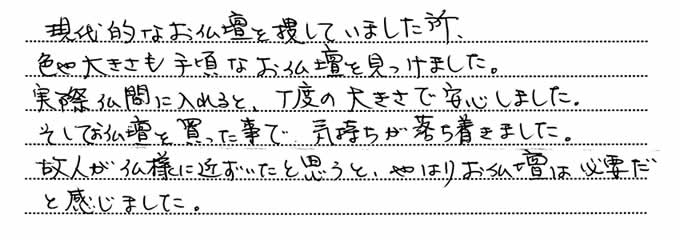 現代的なお仏壇を捜していました所、
色や大きさも手頃なお仏壇を見つけました。
実際仏間に入れると、丁度の大きさで安心しました。
そしてお仏壇を買った事で、気持ちが落ち着きました。
故人が仏様に近ずいたと思うと、やはりお仏壇は必要だ
と感じました。